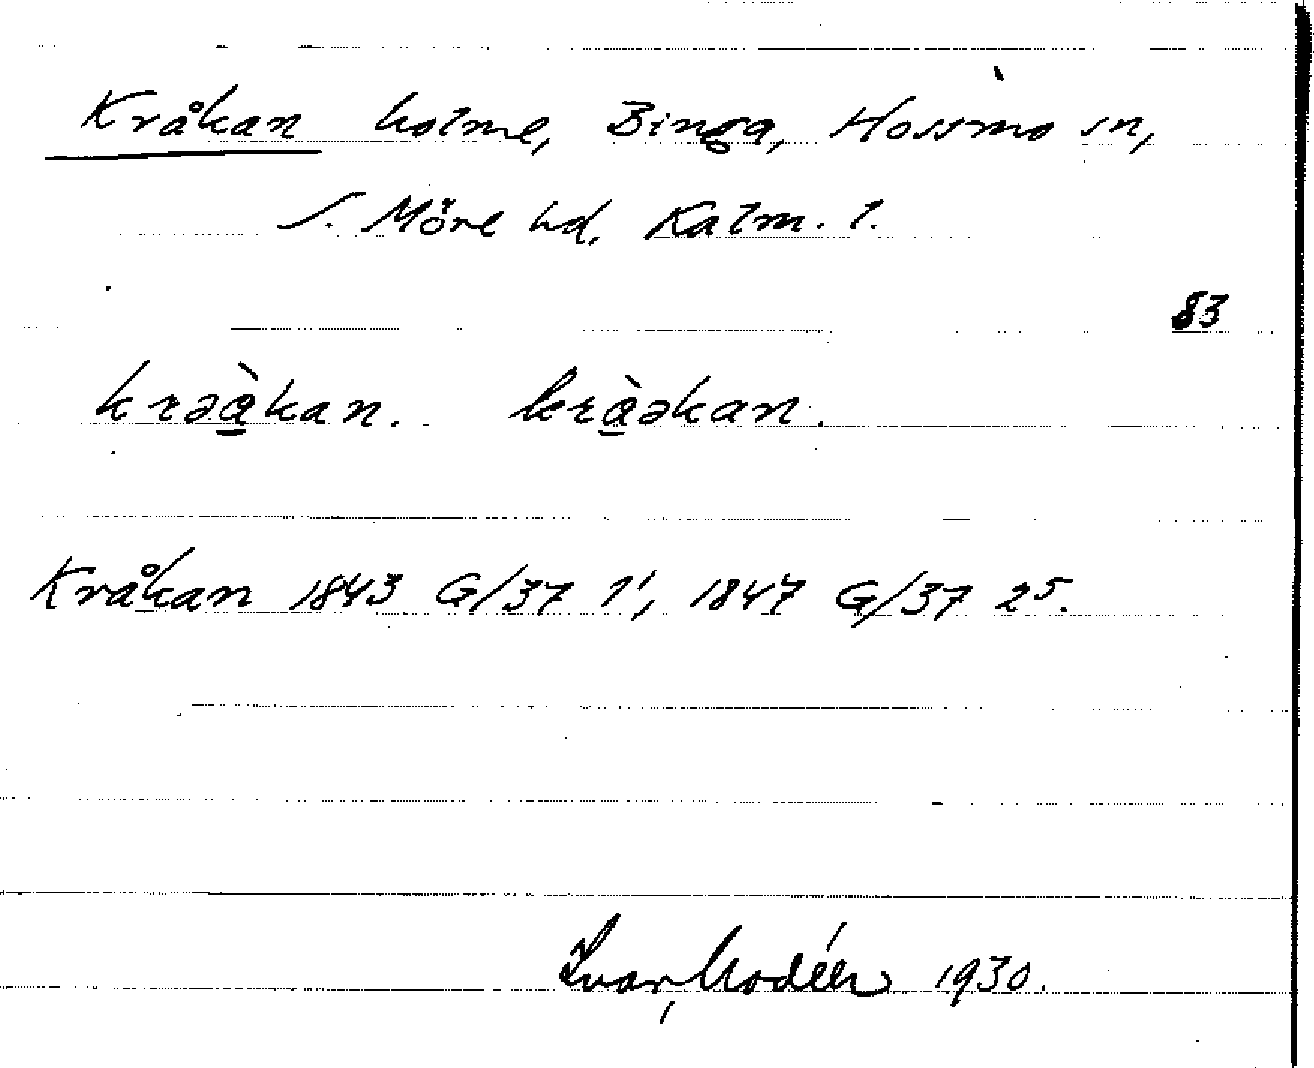 Kråkan holme, Binga, Hossmo sn,
S. Möre hd. Kalm. l.
83
krəàkan. kràəkan.
Kråkan 1843 G/37 1¹, 1847 G/37 2⁵.
Ivar Modéer 1930.